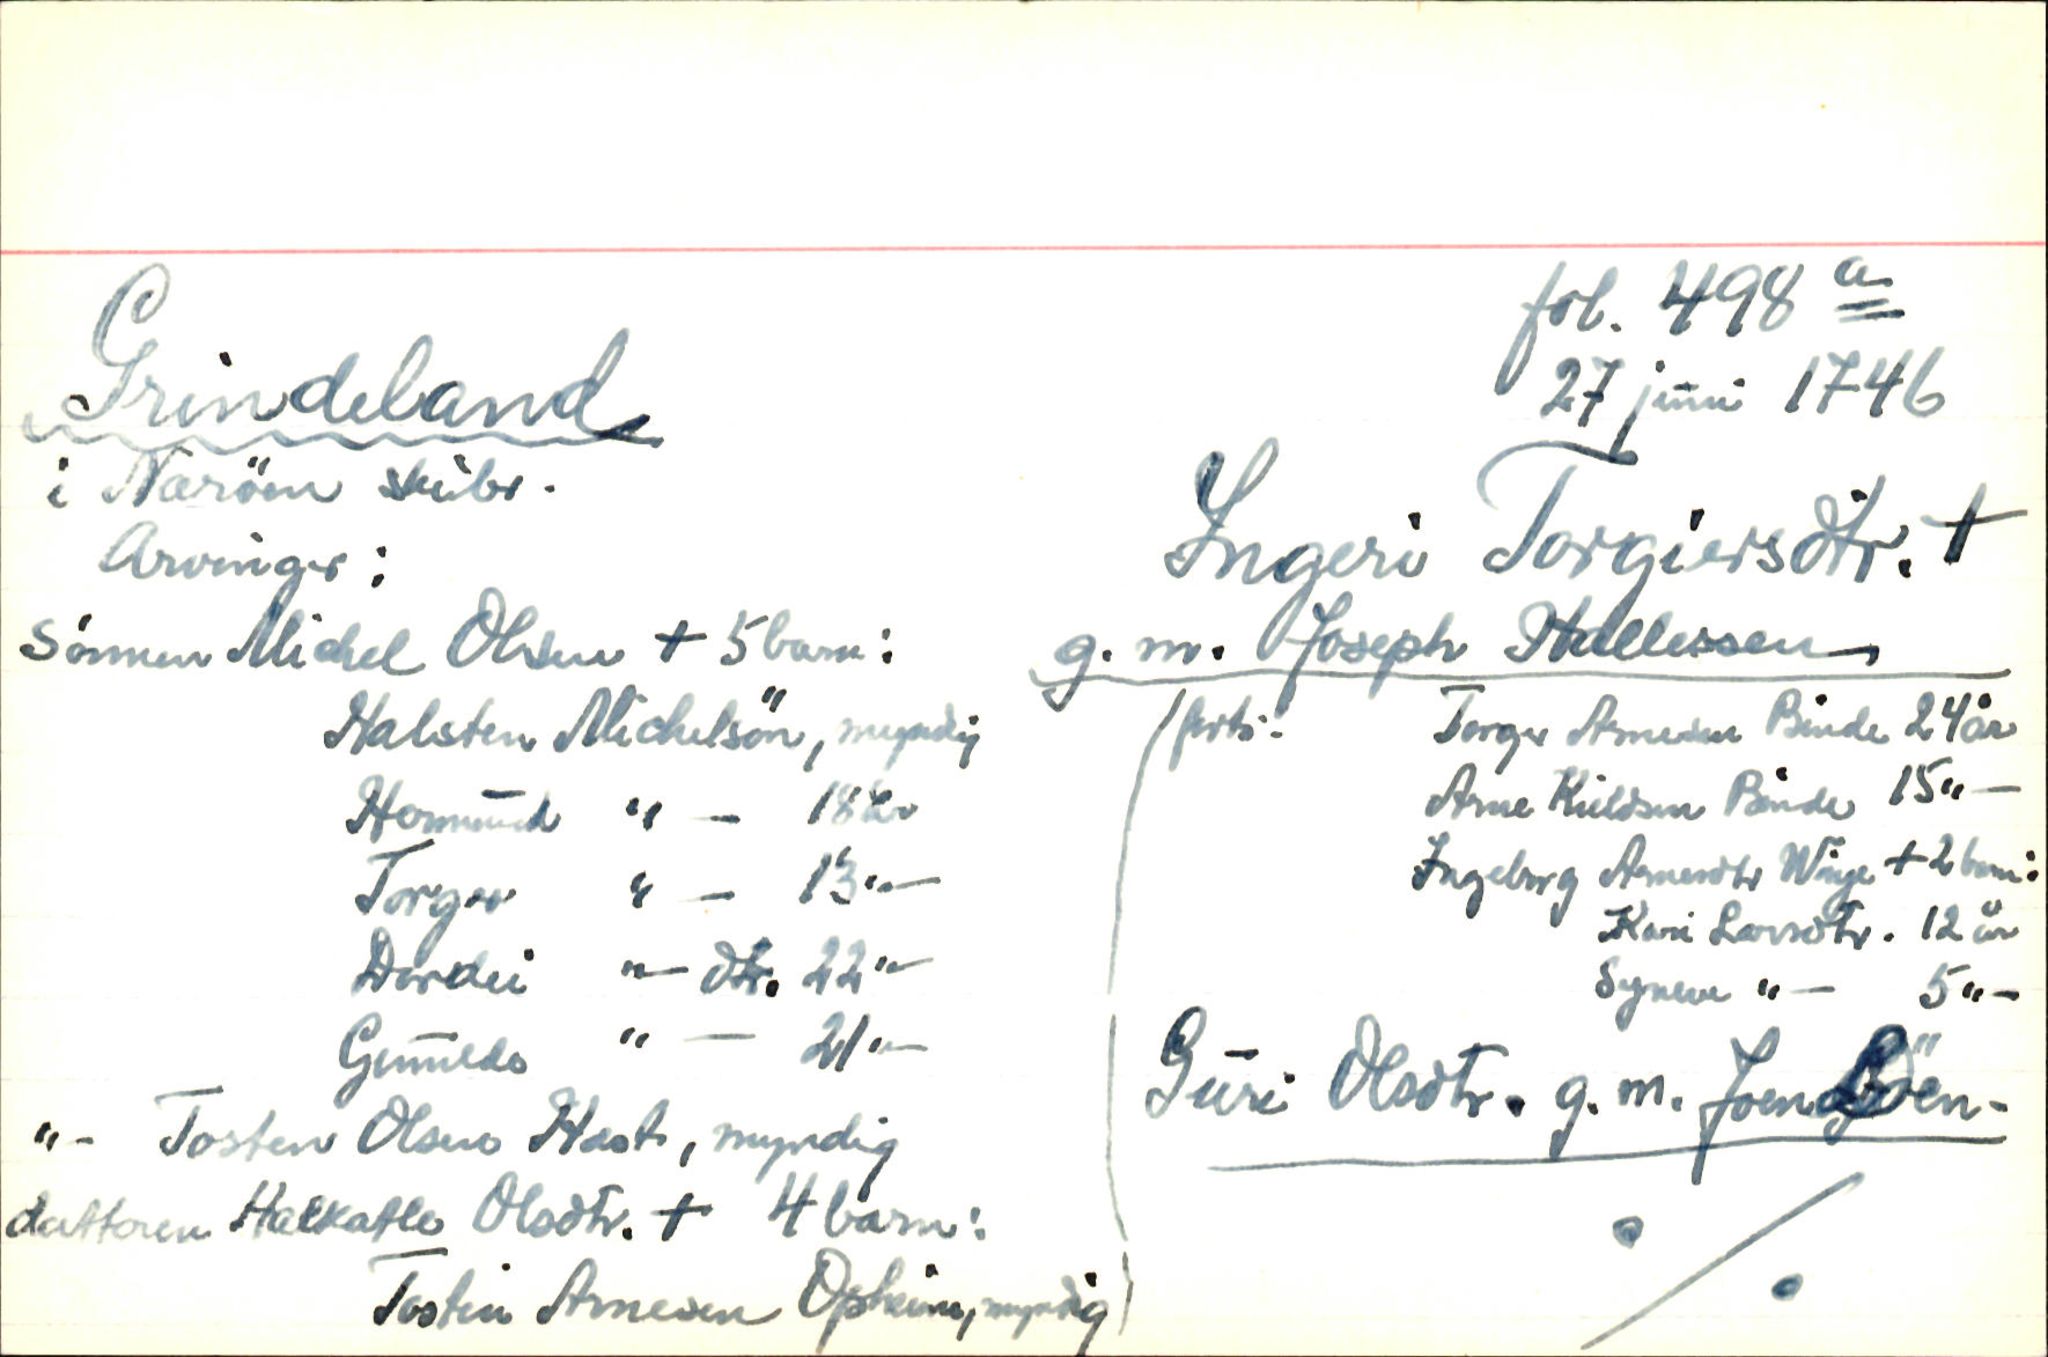 fol. 498 a
27 juni 1746
Grindeland
i Næröen skibr.
Ingeri Torgiersdtr. +
g. m. Joseph Hallessen
Arvinger:
Sönnen Michel Olsen + 5 barn:
Halsten Michelsön, myndig
Hormund " — 18 år
Torger " — 13 " —
Dordei " — dtr. 22 " —
Gunilda " — 21 " —
" - Tosten Olsen, myndig
datteren Halkatle Olsdtr. + 4 barn:
Tosten Arnesen Opheim, myndig
forts:
Torger Arnesen Binde 24 år
Arne Kieldsen Binde 15 " —
Ingeborg Arnesdtr Winje + 2 barn:
Kari Larsdtr. 12 år
Syneve " — 5 " —
Guri Olsdtr. g. m. Joen